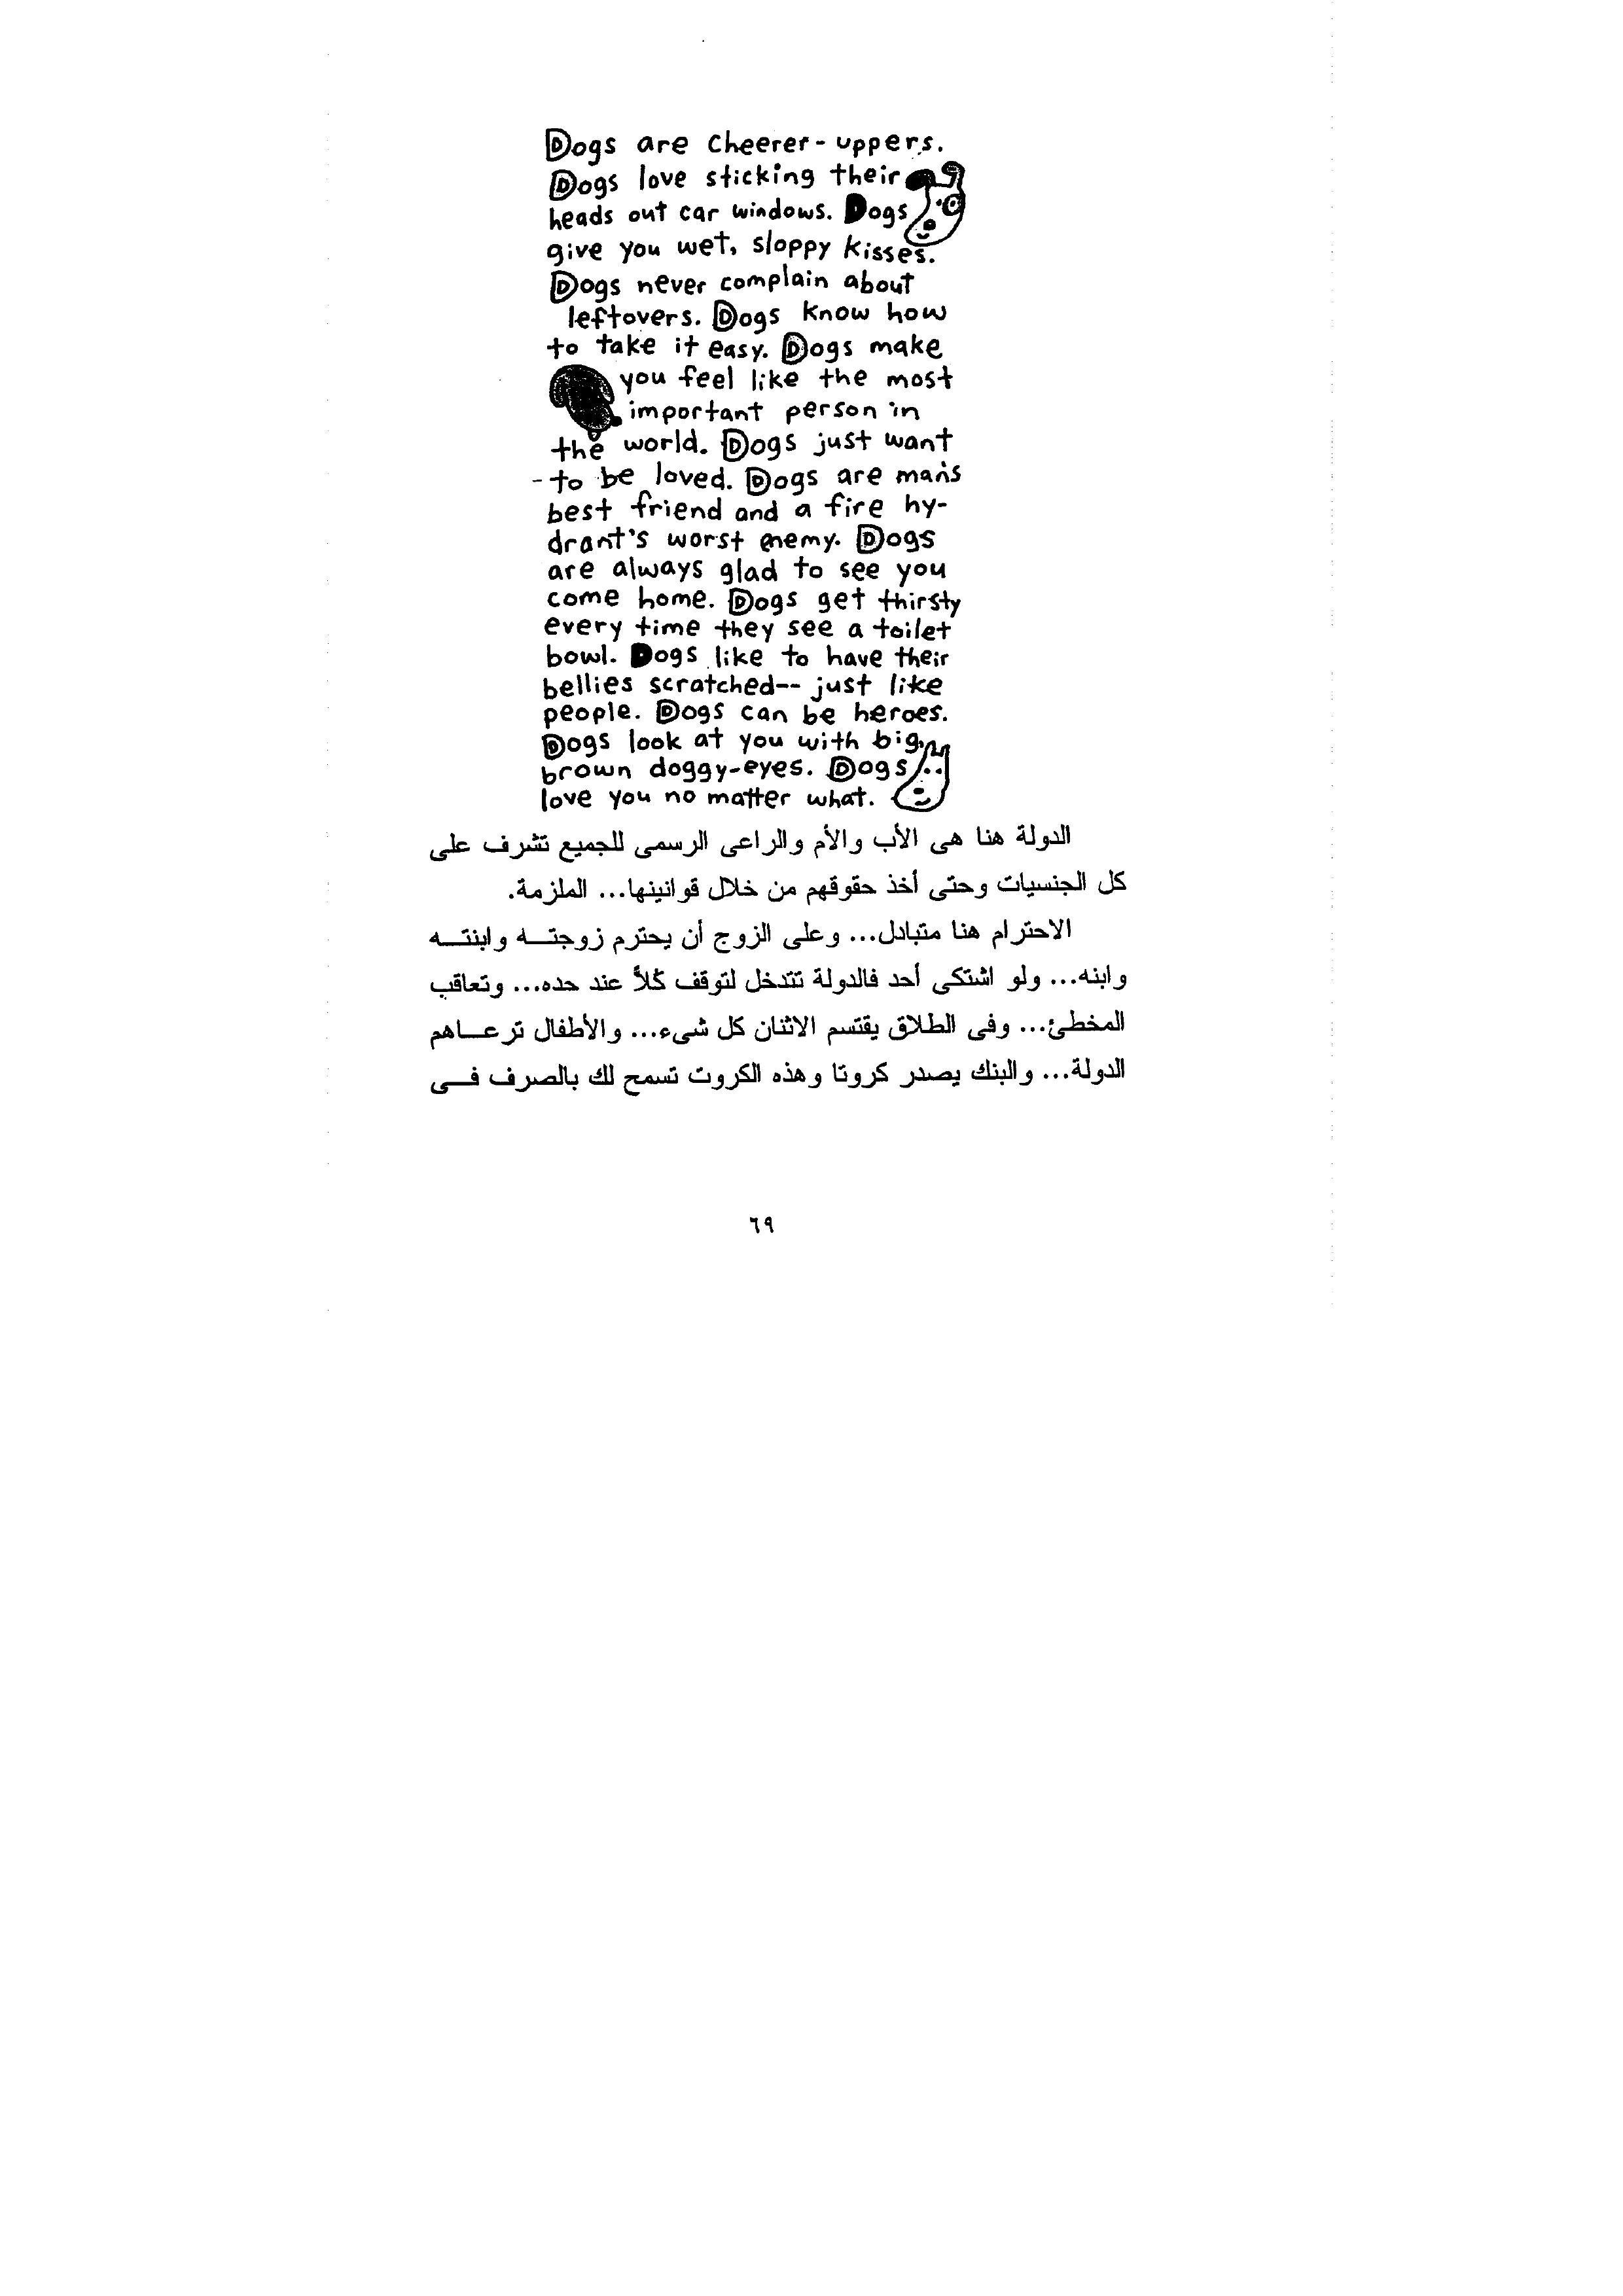 Dogs are cheerer-uppers.
Dogs love sticking their
heads out car windows. Dogs
give you wet, sloppy kisses.
Dogs never complain about
leftovers. Dogs know how
to take it easy. Dogs make
you feel like the most
important person in
the world. Dogs just want
to be loved. Dogs are man's
best friend and a fire hy-
drant's worst enemy. Dogs
are always glad to see you
come home. Dogs get thirsty
every time they see a toilet
bowl. Dogs like to have their
bellies scratched-- just like
people. Dogs can be heroes.
Dogs look at you with big,
brown doggy-eyes. Dogs
love you no matter what.
الدولة هنا هى الأب والأم والراعى الرسمى للجميع تشرف على
كل الجنسيات وحتى أخذ حقوقهم من خلال قوانينها... الملزمة.
الاحترام هنا متبادل... وعلى الزوج أن يحترم زوجتــه وابنتــه
وابنه... ولو اشتكى أحد فالدولة تتدخل لتوقف كلاً عند حده... وتعاقب
المخطئ... وفى الطلاق يقتسم الاثنان كل شىء... والأطفال ترعــاهم
الدولة... والبنك يصدر كروتا وهذه الكروت تسمح لك بالصرف فــى
٦٩